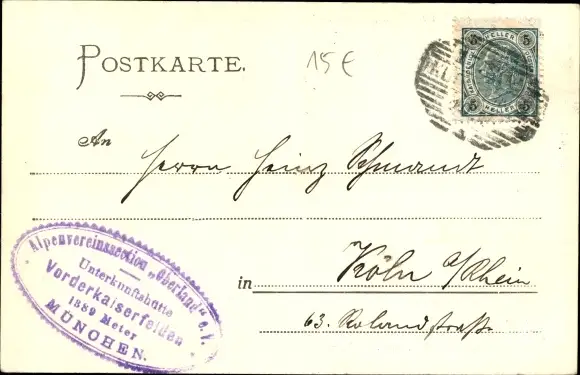 POSTKARTE.
15 €
5 HELLER 5
5 HELLER 5
An
Herrn Heinz Schmandt
in Köln a/Rhein
63. Rolandstraße
Alpenvereinssection „Oberland" e.V.
Unterkunftshütte
Vorderkaiserfelden
1389 Meter
MÜNCHEN.